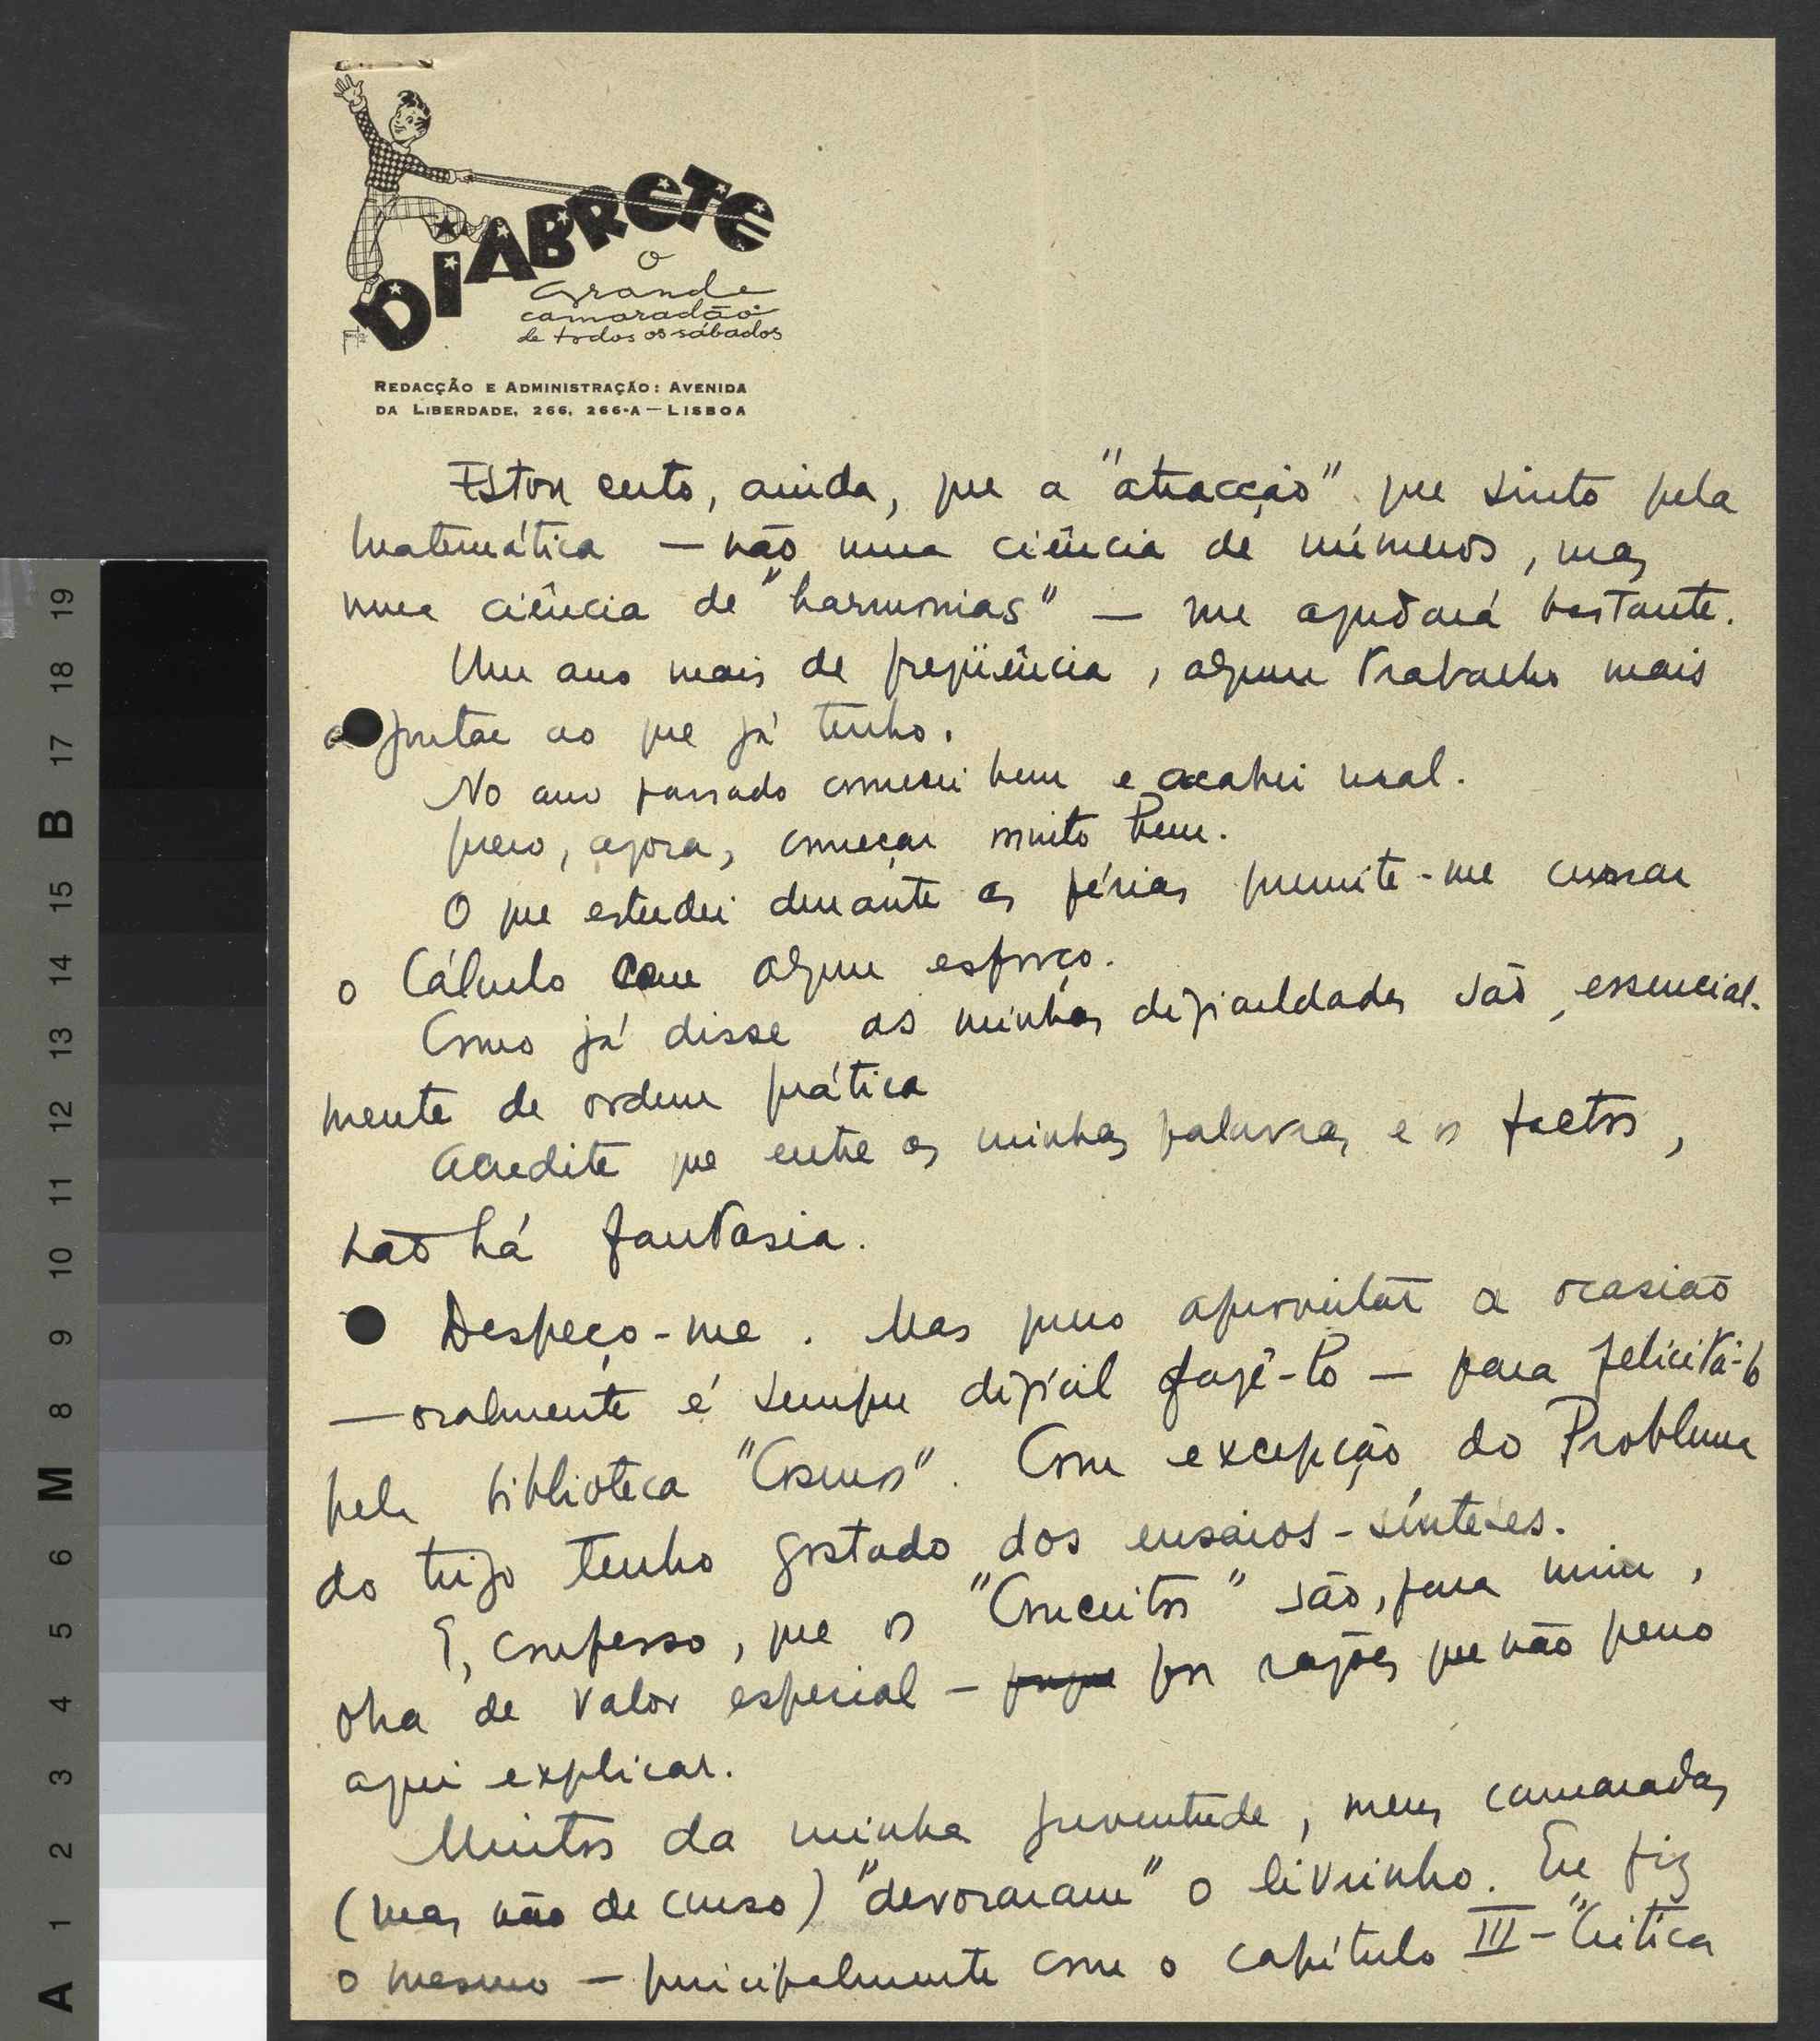 DIABRETE
o
grande
camaradão
de todos os sábados
REDACÇÃO E ADMINISTRAÇÃO: AVENIDA
DA LIBERDADE, 266, 266-A — LISBOA
Estou certo, ainda, que a "atracção" que sinto pela
Matemática — não uma ciência de números, mas
uma ciência de "harmonias" — me ajudará bastante.
Um ano mais de freqüência, algum trabalho mais
a juntar ao que já tenho.
No ano passado comecei bem e acabei mal.
Quero, agora, começar muito bem.
O que estudei durante as férias permite-me cursar
o Cálculo com algum esforço.
Como já disse as minhas dificuldades são, essencial-
mente de ordem prática
Acredite que entre as minhas palavras e os factos,
não há fantasia.
Despeço-me. Mas quero aproveitar a ocasião
— oralmente é sempre difícil fazê-lo — para felicitá-lo
pela biblioteca "Cosmos". Com excepção do Problema
do trigo tenho gostado dos ensaios-sínteses.
E, confesso, que os "Conceitos" são, para mim,
obra de valor especial — por razões que não quero
aqui explicar.
Muitos da minha juventude, meus camaradas
(mas não de curso) "devoraram" o livrinho. Eu fiz
o mesmo — principalmente com o capítulo III - "Crítica
A 1 2 3 4 5 6 M 8 9 10 11 12 13 14 15 B 17 18 19